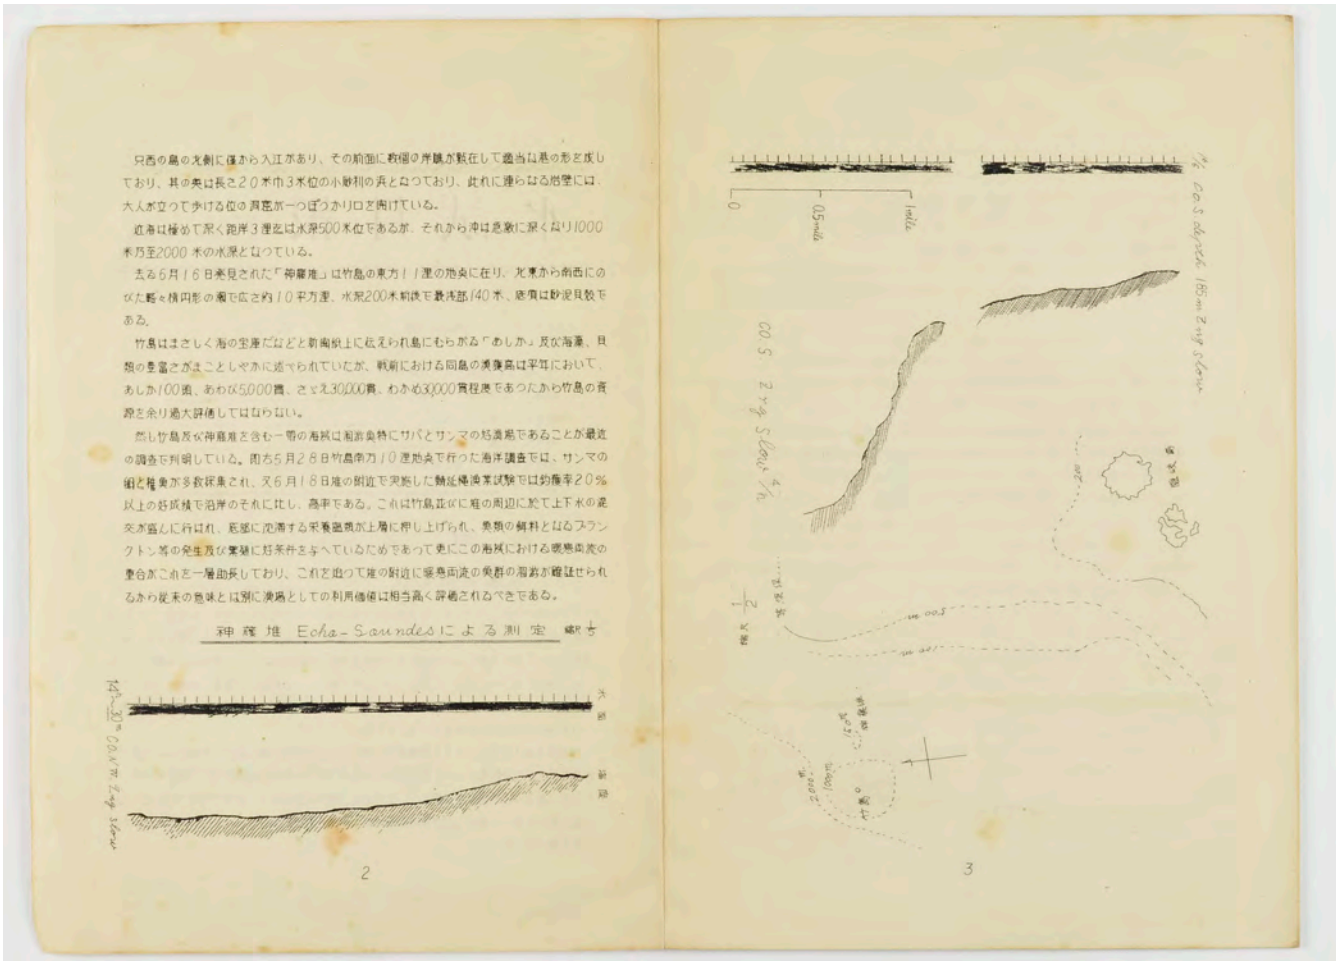 只西の島の北側に僅から入江があり、その前面に数個の岸礁が散在して適当な港の形を成し
ており、其の奥は長さ20米巾3米位の小砂利の浜となつており、此れに連らなる岩壁には、
大人が立つて歩ける位の洞窟が一つぽつかり口を開けている。
近海は極めて深く距岸3浬迄は水深500米位であるが、それから沖は急激に深くなり1000
米乃至2000米の水深となつている。
去る6月16日発見された「神藤堆」は竹島の東方11浬の地点に在り、北東から南西にの
びた略々楕円形の瀬で広さ約10平方浬、水深200米前後で最浅部140米、底質は砂泥貝殻で
ある。
竹島はまさしく海の宝庫だなどと新聞紙上に伝えられ島にむらがる「あしか」及び海藻、貝
類の豊富さがまことしやかに述べられていたが、戦前における同島の漁獲高は平年において、
あしか100頭、あわび5,000貫、さゞえ30,000貫、わかめ30,000貫程度であつたから竹島の資
源を余り過大評価してはならない。
然し竹島及び神藤堆を含む一帯の海域は洄游魚特にサバとサンマの好漁場であることが最近
の調査で判明している。即ち5月28日竹島南方10浬地点で行つた海洋調査では、サンマの
卵と稚魚が多数採集され、又6月18日堆の附近で実施した鯖延縄漁業試験では釣獲率20%
以上の好成績で沿岸のそれに比し、高率である。これは竹島並びに堆の周辺に於て上下水の混
交が盛んに行はれ、底部に沈滞する栄養塩類が上層に押し上げられ、魚類の餌料となるプラン
クトン等の発生及び繁殖に好条件を与へているためであつて更にこの海域における暖寒両流の
重合がこれを一層助長しており、これを追つて堆の附近に暖寒両流の魚群の洄游が確証せられ
るから従来の意味とは別に漁場としての利用価値は相当高く評価されるべきである。
神藤堆 Echo-Soundesによる測定 縮尺 1/5
水面
海底
14h~30m CO.NW. 2ng slow
2
CO.S depth 185m 2ng slow
0
0.5mile
1mile
CO.S 2ng slow
隠岐島
200
500m
100m
縮尺 1/2
150m
神藤堆
1000m
2000m
竹島
3